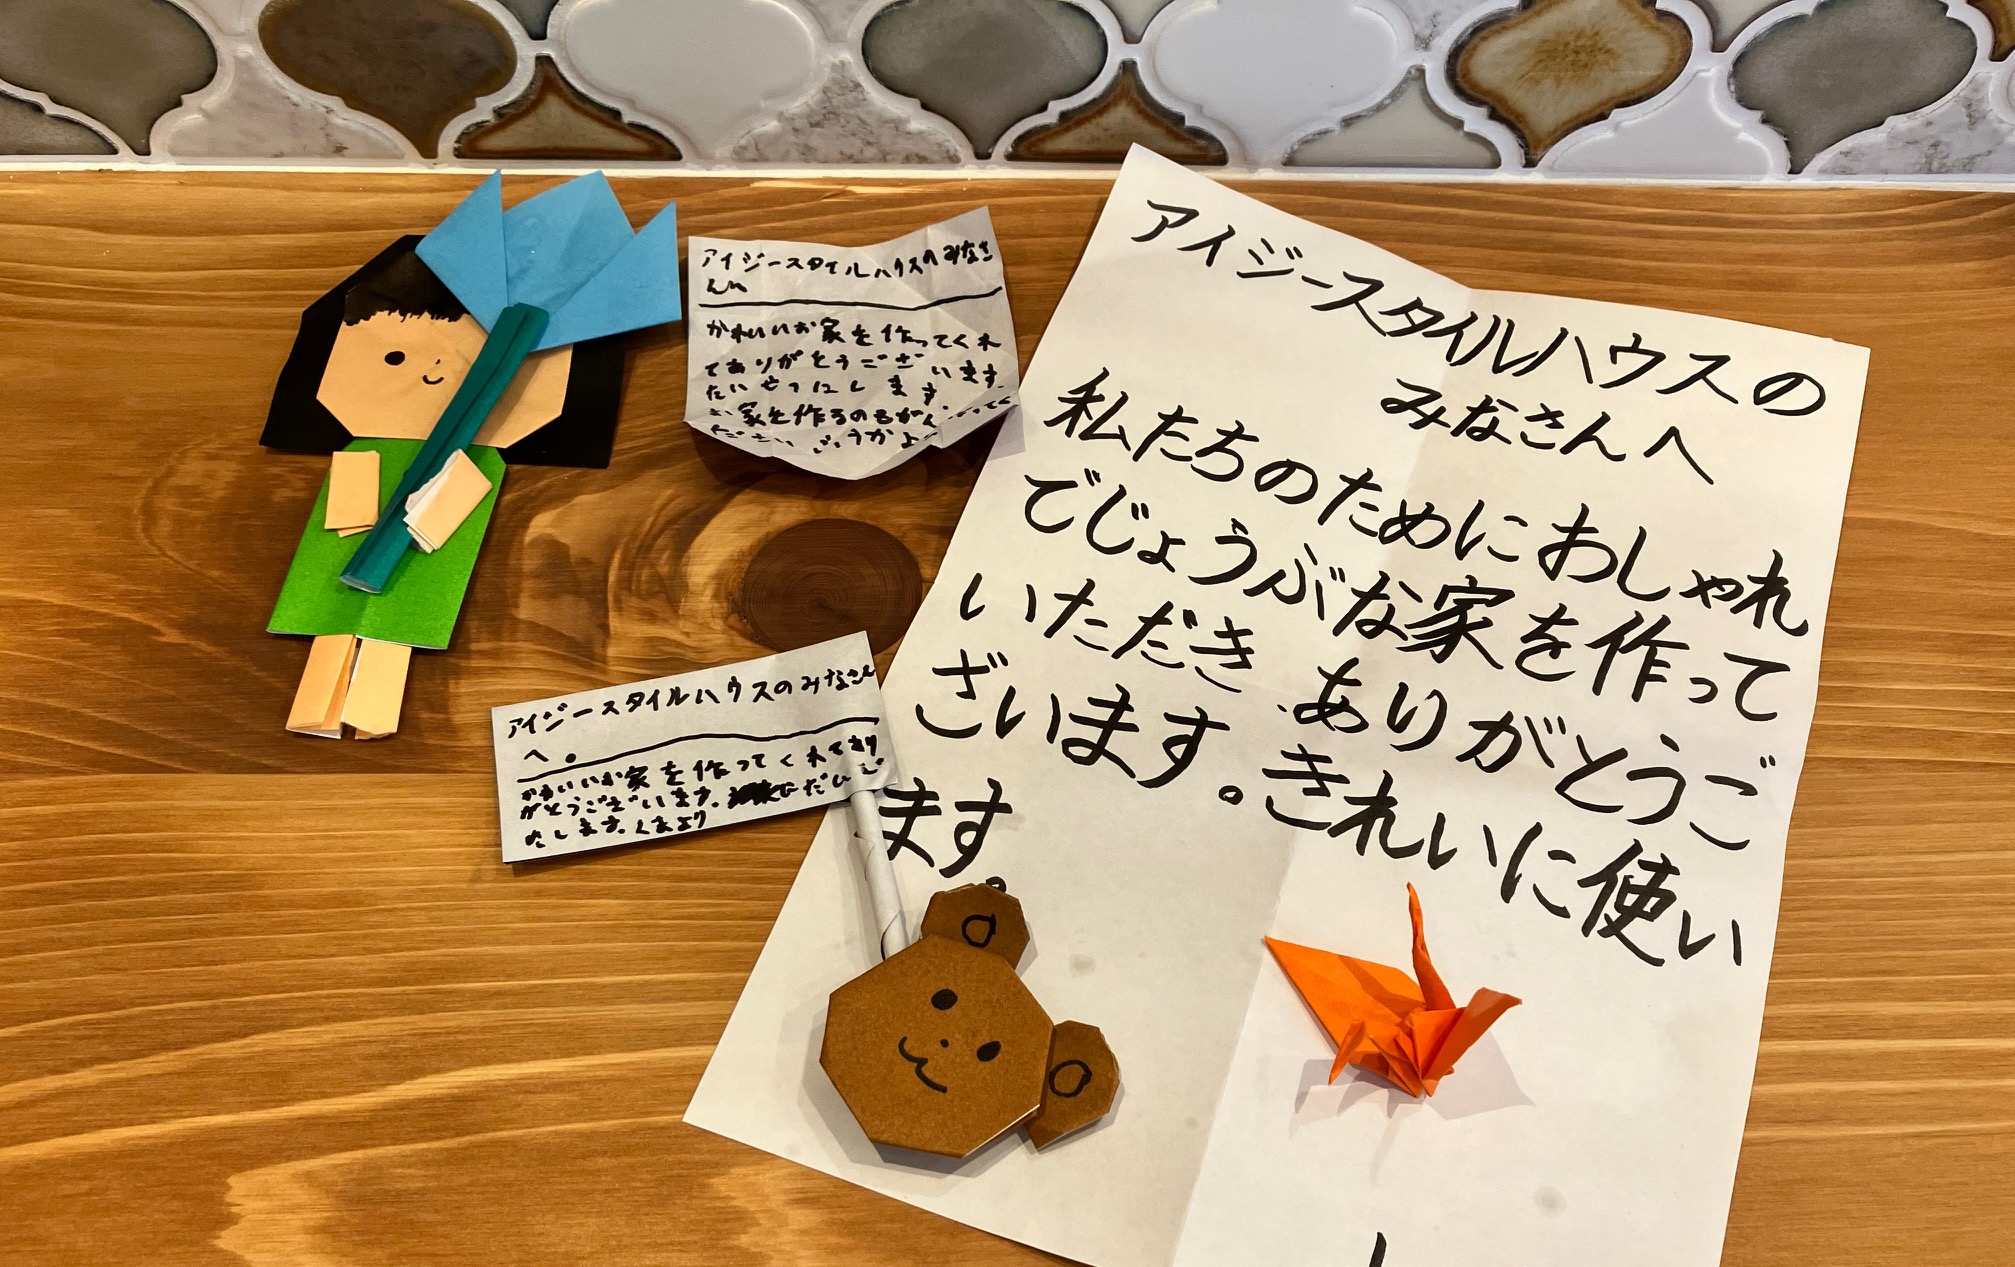 アイジースタイルハウスのみなさ
んへ
かわいいお家を作ってくれ
てありがとうございます。
たいせつにします。
お家を作るのもがん
ください
アイジースタイルハウスの
みなさんへ
私たちのためにおしゃれ
でじょうぶな家を作って
いただき、ありがとうご
ざいます。きれいに使い
ます。
アイジースタイルハウスのみなさん
へ。
かわいいお家を作ってくれてあり
がとうございます。
たします。くまより